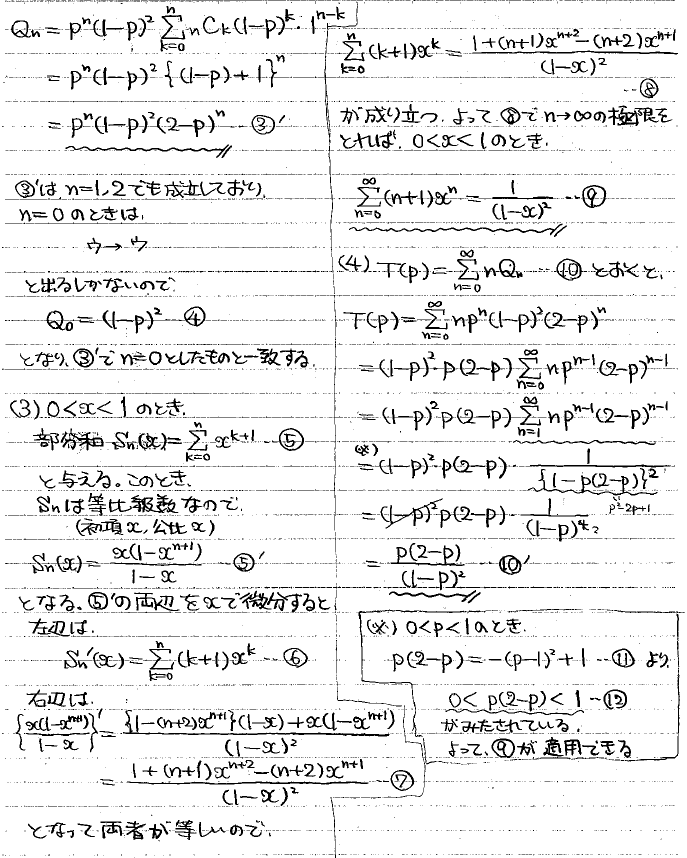 Qn = pⁿ(1-p)² Σ[k=0→n] nCk(1-p)ᵏ・1ⁿ⁻ᵏ
= pⁿ(1-p)² {(1-p)+1}ⁿ
= pⁿ(1-p)²(2-p)ⁿ …③′
③′は n=1,2でも成立しており,
n=0 のときは,
ウ→ウ
と出るしかないので
Q₀ = (1-p)² …④
となり, ③′で n=0としたものと一致する.
(3) 0<x<1 のとき,
部分和 Sn(x) = Σ[k=0→n] xᵏ⁺¹ …⑤
と与える。このとき,
Snは等比級数なので,
(初項 x, 公比 x)
Sn(x) = x(1-xⁿ⁺¹)/(1-x) …⑤′
となる. ⑤′の両辺をxで微分すると
左辺は,
Sn′(x) = Σ[k=0→n] (k+1)xᵏ …⑥
右辺は,
{x(1-xⁿ⁺¹)/(1-x)}′ = [{1-(n+2)xⁿ⁺¹}(1-x)+x(1-xⁿ⁺¹)]/(1-x)²
= [1+(n+1)xⁿ⁺²-(n+2)xⁿ⁺¹]/(1-x)² …⑦
となって両者が等しいので,
Σ[k=0→n] (k+1)xᵏ = [1+(n+1)xⁿ⁺²-(n+2)xⁿ⁺¹]/(1-x)²
…⑧
が成り立つ. よって⑧でn→∞の極限を
とれば, 0<x<1のとき,
Σ[n=0→∞] (n+1)xⁿ = 1/(1-x)² …⑨
(4) T(p) = Σ[n=0→∞] nQn …⑩ とおくと,
T(p) = Σ[n=0→∞] npⁿ(1-p)²(2-p)ⁿ
= (1-p)² p(2-p) Σ[n=0→∞] npⁿ⁻¹(2-p)ⁿ⁻¹
= (1-p)² p(2-p) Σ[n=1→∞] npⁿ⁻¹(2-p)ⁿ⁻¹
(※)
= (1-p)²・p(2-p)・1/{1-p(2-p)}²
p²-2p+1
= (1-p)² p(2-p)・1/(1-p)⁴ ₂
= p(2-p)/(1-p)² …⑩′
(※) 0<p<1のとき,
p(2-p) = -(p-1)²+1 …⑪ より
0<p(2-p)<1 …⑫
がみたされている.
よって, ⑨が適用できる